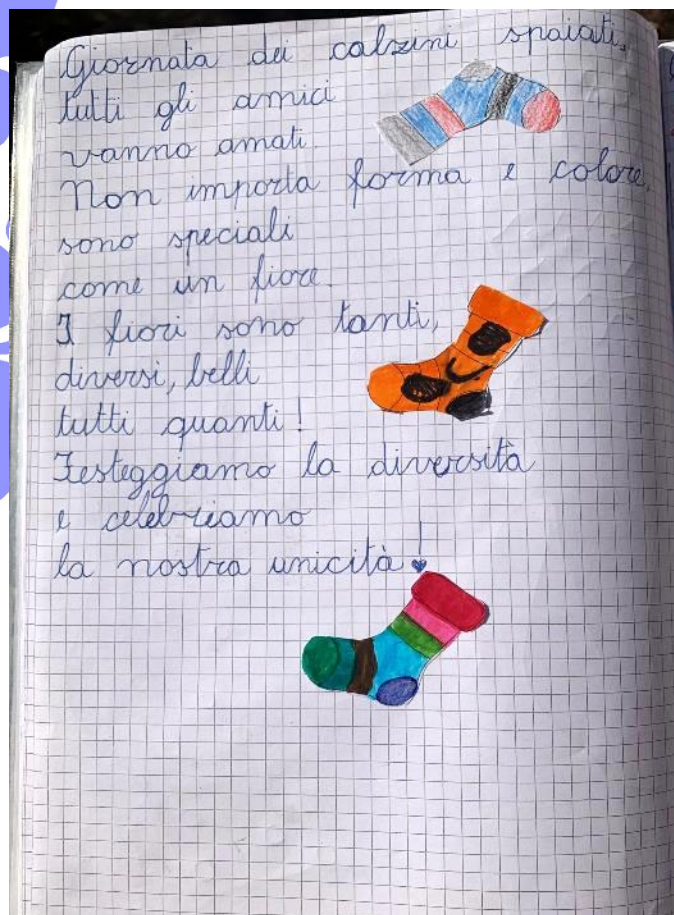 Giornata dei calzini spaiati,
tutti gli amici
vanno amati.
Non importa forma e colore,
sono speciali
come un fiore.
I fiori sono tanti,
diversi, belli
tutti quanti!
Festeggiamo la diversità
e celebriamo
la nostra unicità!